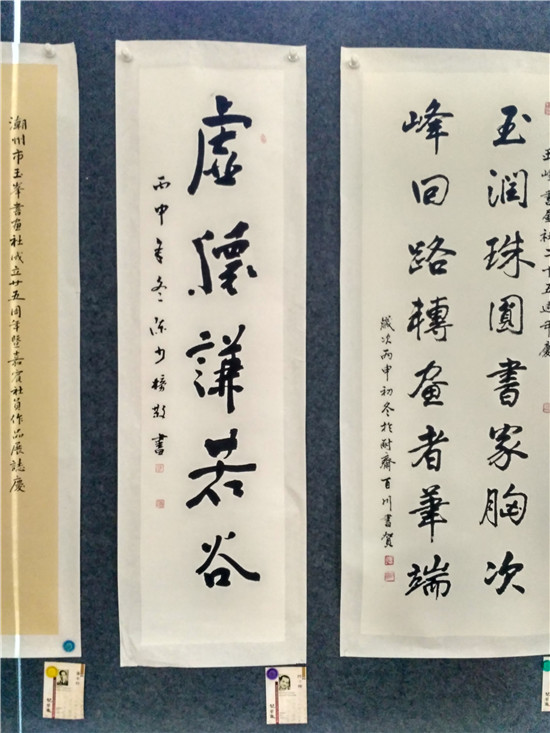 玉峰書畫社二十五週年慶
玉潤珠圓書家胸次
峰回路轉畫者筆端
歲次丙申初冬於耐齋百川書賀
虛懷謙若谷
丙申年冬陈少榜敬書
潮州市玉峯書画社成立廿五周年暨嘉賓社員作品展誌慶